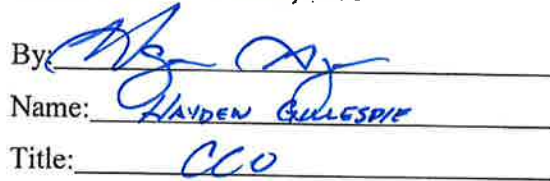 By:
Name: HAYDEN GILLESPIE
Title: CCO